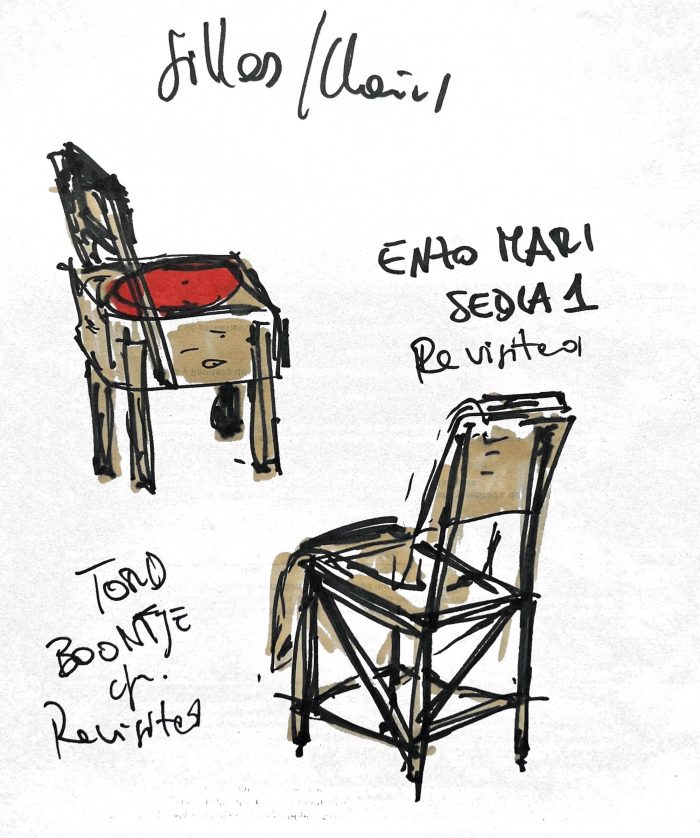 Sillas / Chairs
ENZO MARI
SEDIA 1
Revisited
TORD
BOONTJE
ch.
Revisited